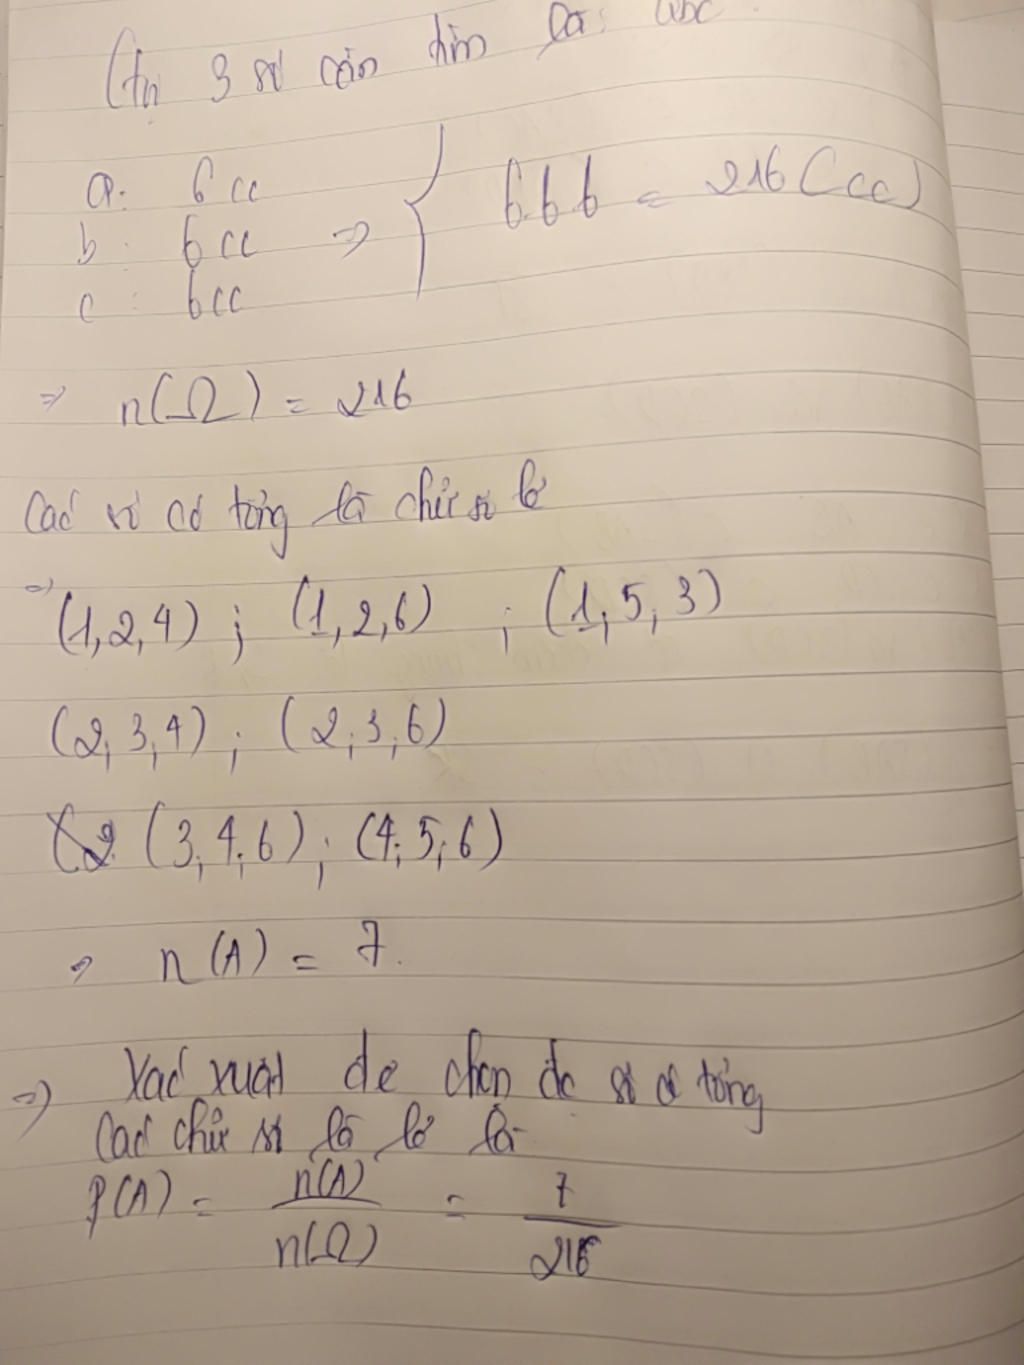 Gọi 3 số cần tìm là: abc
a: 6 cc
b: 6 cc => } 6.6.6 = 216 (cc)
c: 6cc
=> n(Ω) = 216
Các số có tổng là chữ số lẻ
=> (1,2,4) ; (1,2,6) ; (1,5,3)
(2,3,4) ; (2,3,6)
(3,4,6) ; (4,5,6)
=> n(A) = 7.
=> Xác xuất để chọn đc số có tổng
các chữ số là lẻ là
P(A) = n(A)/n(Ω) = 7/216